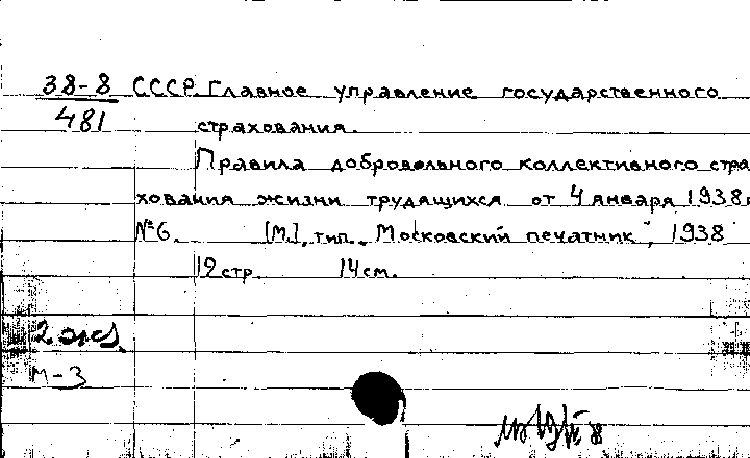 38-8 СССР. Главное управление государственного
481 страхования.
Правила добровольного коллективного стра
хования жизни трудящихся от 4 января 1938г.
№6. [М.], тип. „Московский печатник“, 1938
12 стр. 14 см.
2 экз.
М-3